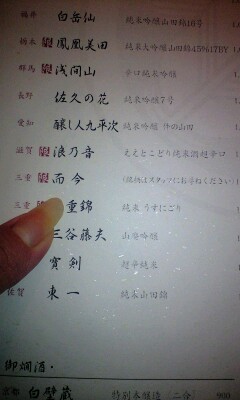 福井 白岳仙 純米吟醸山田錦16号
栃木 鳳凰美田 純米大吟醸山田錦45%17BY
群馬 浅間山 辛口純米吟醸
長野 佐久の花 純米吟醸7号
愛知 醸し人九平次 純米吟醸 件の山田
滋賀 浪乃音 ええとこどり純米酒超辛口
三重 而今 (銘柄はスタッフにお尋ねください)
三重 重錦 純米うすにごり
三谷藤夫 山廃吟醸
寳剣 超辛純米
佐賀 東一 純米山田錦
御燗酒・
京都 白壁蔵 特別本醸造 二合 900